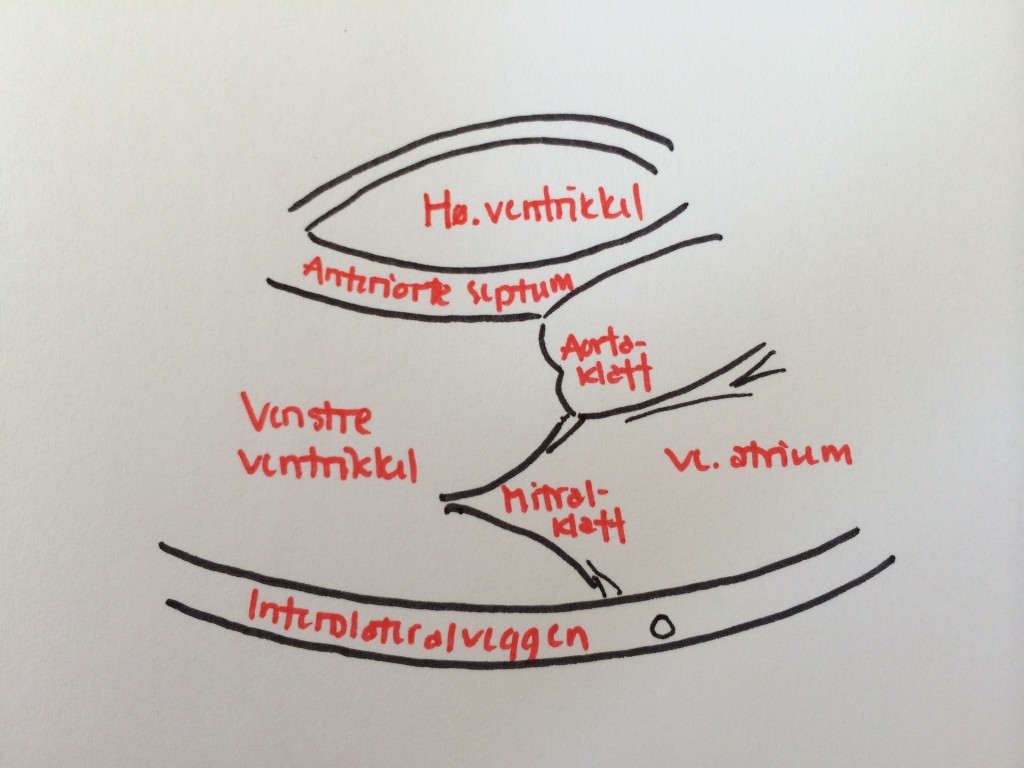 Hø. ventrikkel
Anteriore septum
Aorta-
klaff
Venstre
ventrikkel
ve. atrium
Mitral-
klaff
Inferolateralveggen